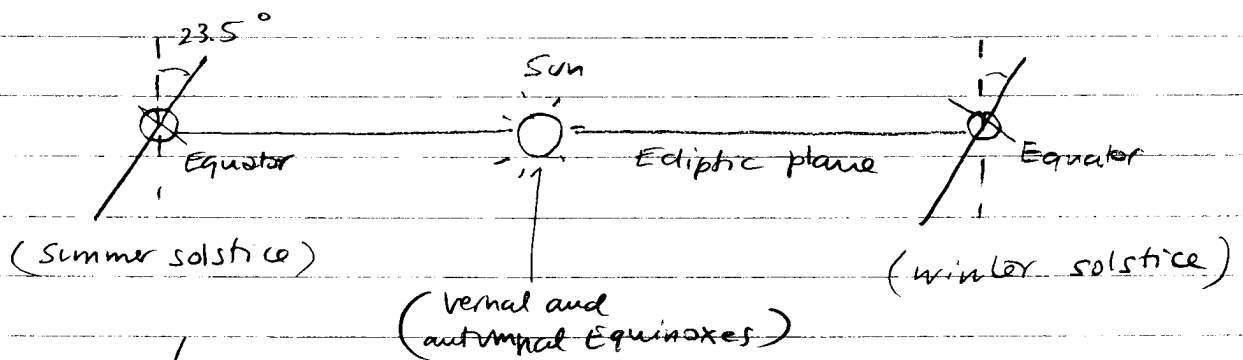 23.5°
Sun
Equator
Ecliptic plane
Equator
(Summer solstice)
(winter solstice)
(vernal and
autumnal Equinoxes)